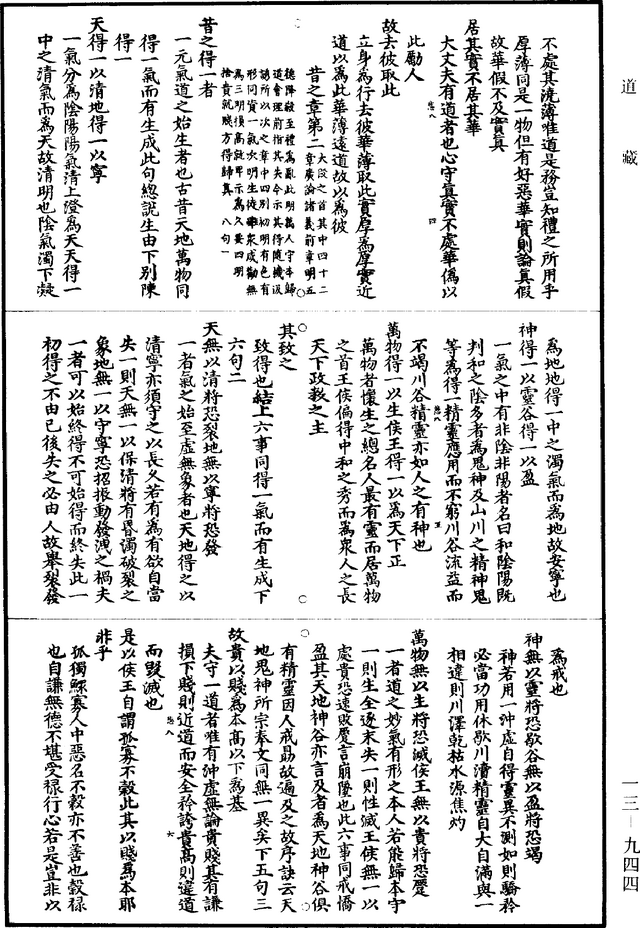 道藏
不處其澆薄唯道是務豈知禮之所用乎
厚薄同是一物但有好惡華實則論真假
故華假不及實真
居其實不居其華
大丈夫有道者也心守真實不處華僞以
此勵人
故去彼取此
立身為行去彼華薄取此實厚為厚實近
道以為此華薄遠道故以為彼
昔之章第二
昔之得一者
一元氣道之始生者也古昔天地萬物同
得一氣而有生成此句總說生由下別陳
得一
天得一以清地得一以寧
一氣分為陰陽陽氣清上澄為天天得一
中之清氣而為天故清明也陰氣濁下凝
為地地得一中之濁氣而為地故安寧也
神得一以靈谷得一以盈
一氣之中有非陰非陽者名曰和陰陽既
判和之陰多者為鬼神及山川之精神鬼
等為得一精靈應用而不窮川谷流益而
不竭川谷精靈亦如人之有神也
萬物得一以生侯王得一以為天下正
萬物者懷生之總名人最有靈而居萬物
之首王侯偏得中和之秀而為衆人之長
天下政教之主
其致之
致得也結上六事同得一氣而有生成下
六句二
天無以清將恐裂地無以寧將恐發
一者氣之始至虛無象者也天地得之以
清寧亦須守之以長久若有為有欲自當
失一則天無一以保清將有昬濁破裂之
象地無一以守寧恐招振動發洩之禍夫
一者可以始終得不可始得而終失此一
初得之不由己後失之必由人故舉裂發
為戒也
神無以靈將恐歇谷無以盈將恐竭
神若用一沖虛自得靈異不測如則驕矜
必當功用休歇川瀆精靈自大自滿與一
相違則川澤乾枯水源焦灼
萬物無以生將恐滅侯王無以貴將恐蹷
一者道之妙氣有形之本人若能歸本守
一則生全逐末失一則性滅王侯無一以
處貴恐速敗蹷言崩墜也此六事同戒憍
盈其天地神谷亦言及者為天地神谷俱
有精靈因人戒勗故遍及之故序訣云天
地鬼神所宗奉文同無一異矣下五句三
故貴以賤為本高以下為基
夫守一道者唯有沖虛無論貴賤其有謙
損下賤則近道而安全矜誇貴高則違道
而毀滅也
是以侯王自謂孤寡不穀此其以賤為本耶
非乎
孤獨鰥寡人中惡名不穀亦不善也穀祿
也自謙無德不堪受祿行心若是豈非以
一三—九四四